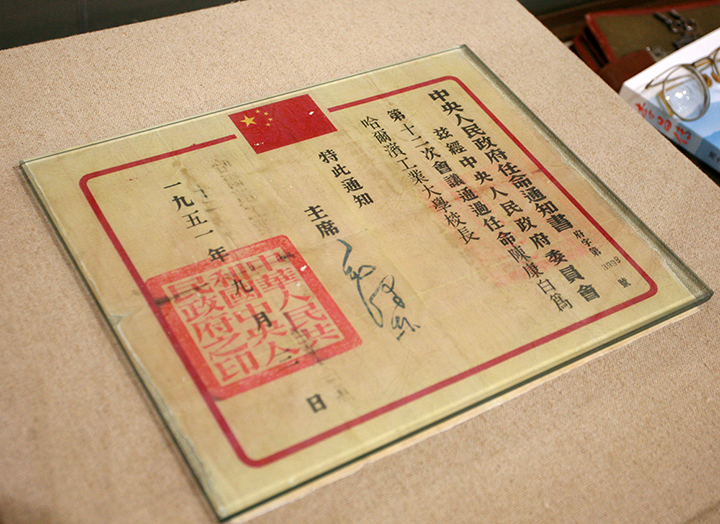 中央人民政府任命通知書
府字第3938號
茲經中央人民政府委員會
第十二次會議通過任命陳康白為
哈爾濱工業大學校長
特此通知
主席
毛澤東
一九五一年九月三日
中華人民共
和國中央人
民政府之印